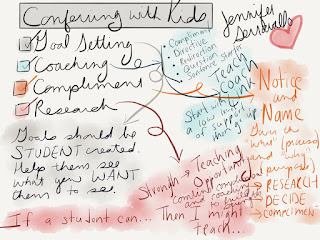 Conferring with Kids
Jennifer
Serravallo
Goal Setting
Coaching
Compliment
Research
Compliment
Directive
Redirection
Question
Sentence Starter
Teach
Coach
Link
Start with
a lot of
support, then
Notice
and
Name
"what" (process)
and "why"
purpose
RESEARCH
DECIDE
COMPLIMENT
Goals should be
STUDENT created.
Help them see
what you WANT
them to see.
Strength → Teaching
Opportunity
If a student can...
Then I might
teach...